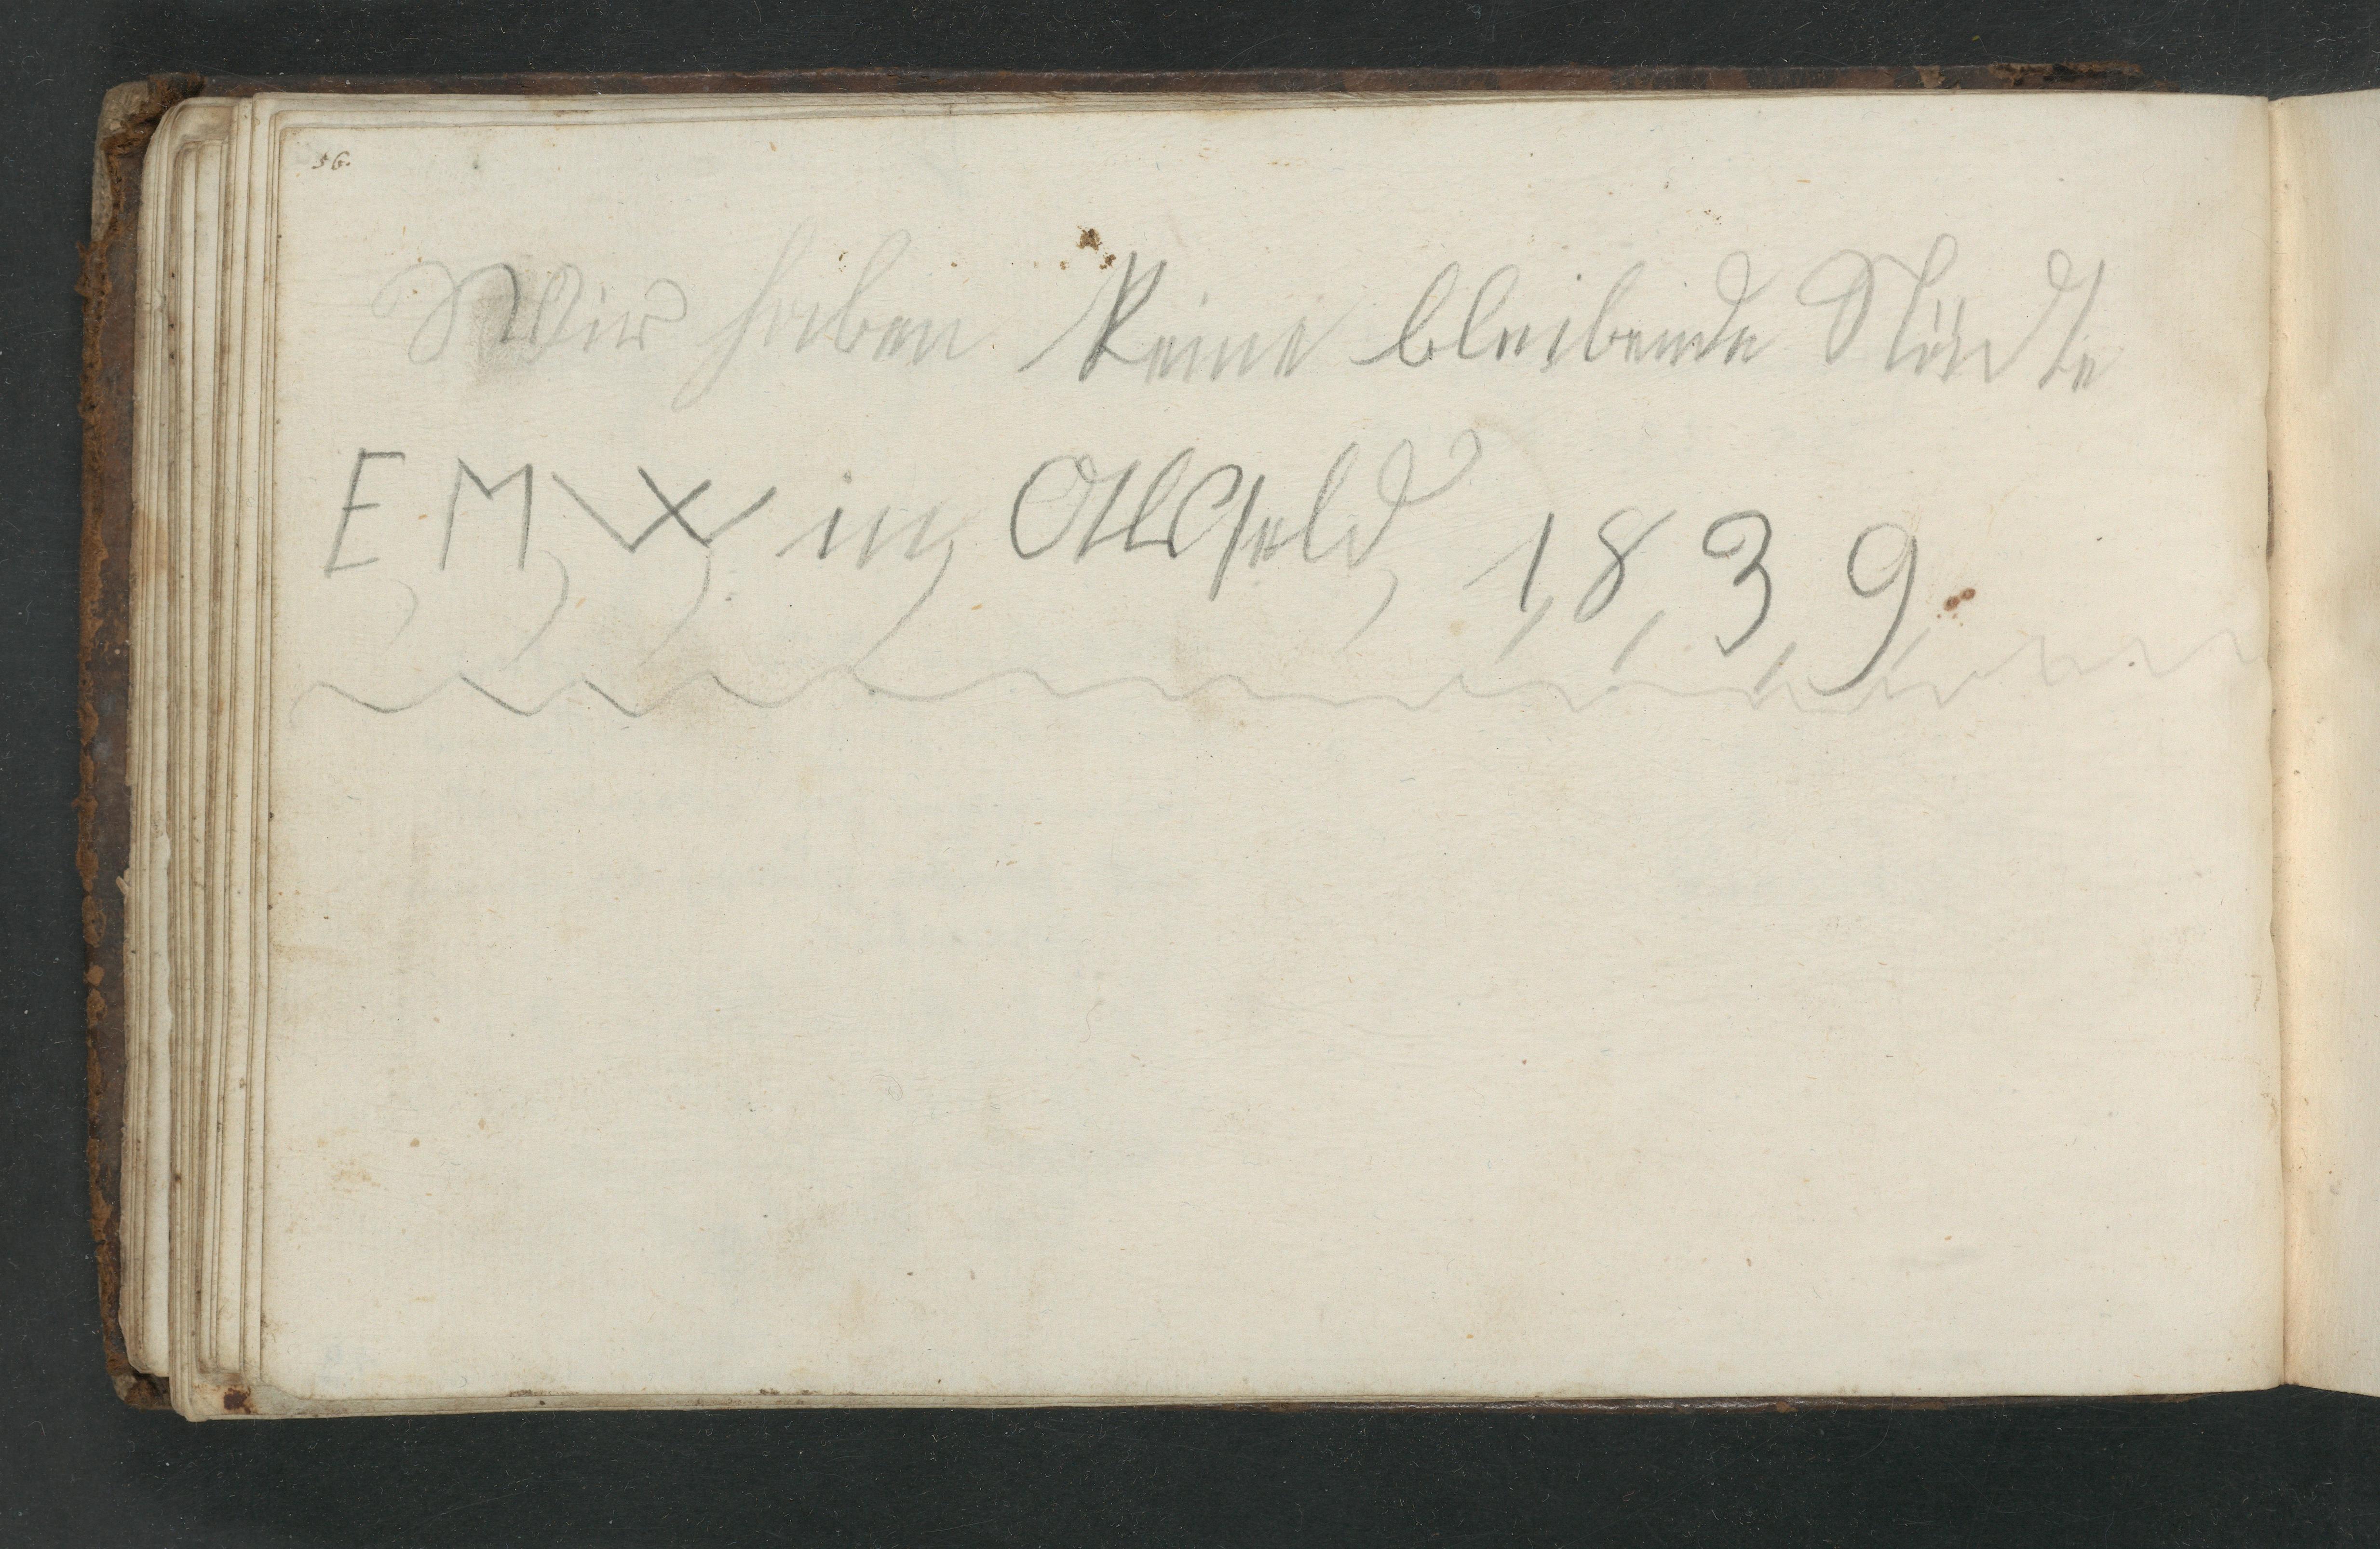 56.
Wir haben keine bleibende Städte
E, M, W, in, Allsfeld, 1,8,3,9,